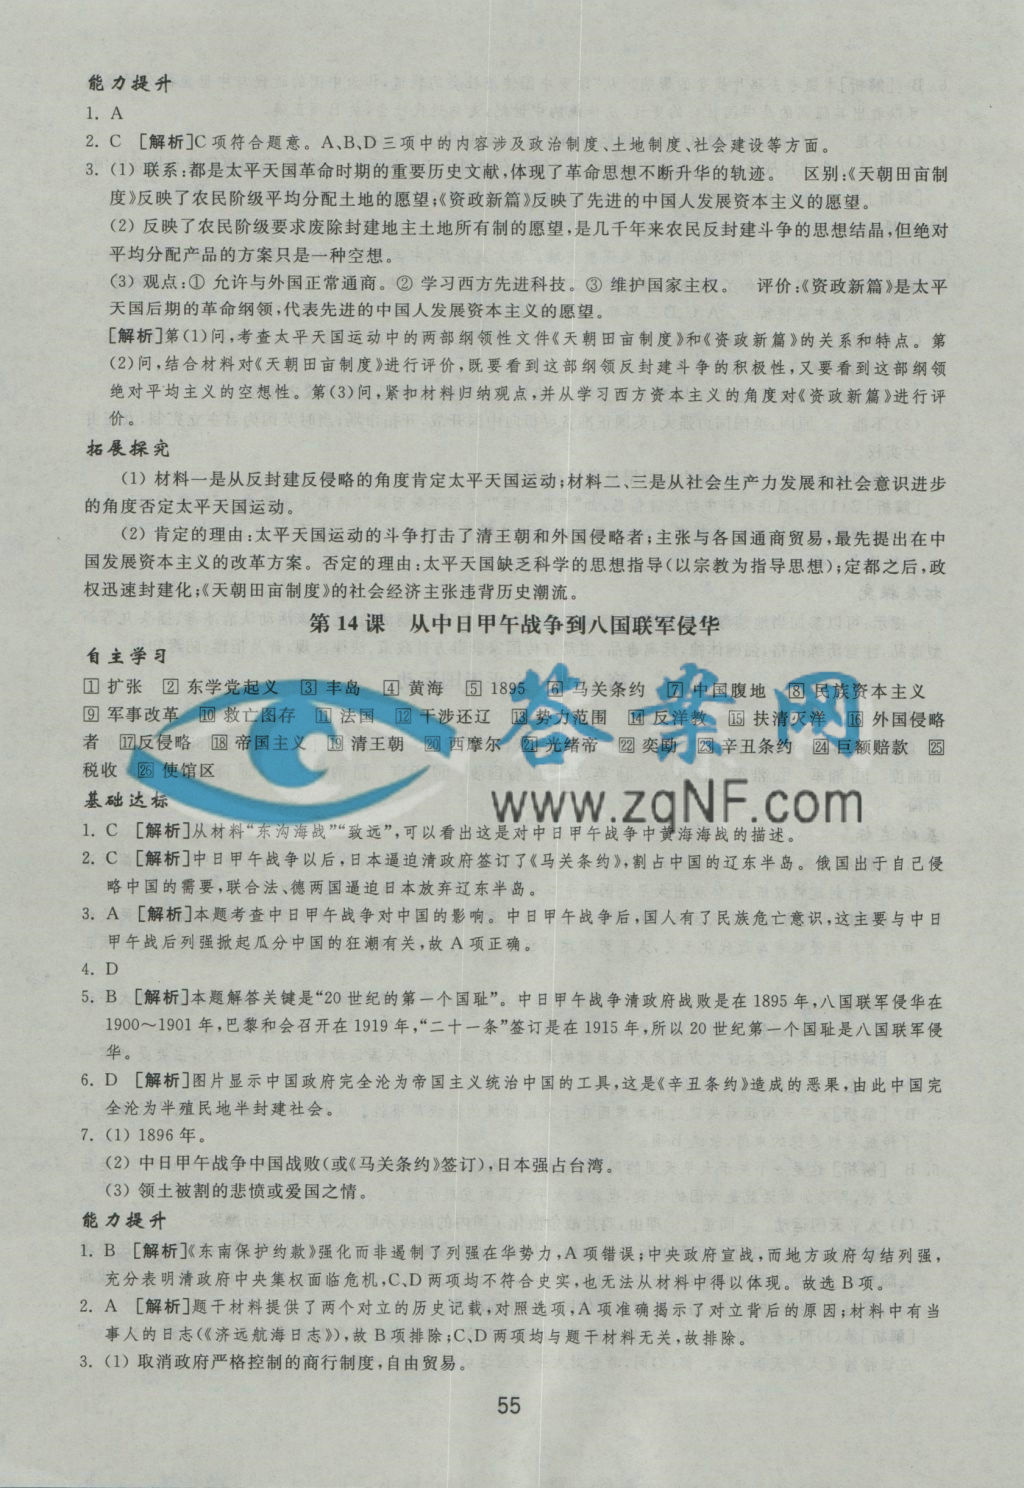 能力提升
1. A
2. C [解析]C项符合题意。A、B、D三项中的内容涉及政治制度、土地制度、社会建设等方面。
3. (1) 联系:都是太平天国革命时期的重要历史文献,体现了革命思想不断升华的轨迹。 区别:《天朝田亩制
度》反映了农民阶级平均分配土地的愿望;《资政新篇》反映了先进的中国人发展资本主义的愿望。
(2) 反映了农民阶级要求废除封建地主土地所有制的愿望,是几千年来农民反封建斗争的思想结晶,但绝对
平均分配产品的方案只是一种空想。
(3) 观点:① 允许与外国正常通商。② 学习西方先进科技。③ 维护国家主权。 评价:《资政新篇》是太平
天国后期的革命纲领,代表先进的中国人发展资本主义的愿望。
[解析]第(1)问,考查太平天国运动中的两部纲领性文件《天朝田亩制度》和《资政新篇》的关系和特点。第
(2)问,结合材料对《天朝田亩制度》进行评价,既要看到这部纲领反封建斗争的积极性,又要看到这部纲领
绝对平均主义的空想性。第(3)问,紧扣材料归纳观点,并从学习西方资本主义的角度对《资政新篇》进行评
价。
拓展探究
(1) 材料一是从反封建反侵略的角度肯定太平天国运动;材料二、三是从社会生产力发展和社会意识进步
的角度否定太平天国运动。
(2) 肯定的理由:太平天国运动的斗争打击了清王朝和外国侵略者;主张与各国通商贸易,最先提出在中
国发展资本主义的改革方案。否定的理由:太平天国缺乏科学的思想指导(以宗教为指导思想);定都之后,政
权迅速封建化;《天朝田亩制度》的社会经济主张违背历史潮流。
第 14 课 从中日甲午战争到八国联军侵华
自主学习
1 扩张 2 东学党起义 3 丰岛 4 黄海 5 1895 6 马关条约 7 中国腹地 8 民族资本主义
9 军事改革 10 救亡图存 11 法国 12 干涉还辽 13 势力范围 14 反洋教 15 扶清灭洋 16 外国侵略
者 17 反侵略 18 帝国主义 19 清王朝 20 西摩尔 21 光绪帝 22 奕劻 23 辛丑条约 24 巨额赔款 25
税收 26 使馆区
答案网
www.zqNF.com
基础达标
1. C [解析]从材料“东沟海战”“致远”,可以看出这是对中日甲午战争中黄海海战的描述。
2. C [解析]中日甲午战争以后,日本逼迫清政府签订了《马关条约》,割占中国的辽东半岛。俄国出于自己侵
略中国的需要,联合法、德两国逼迫日本放弃辽东半岛。
3. A [解析]本题考查中日甲午战争对中国的影响。中日甲午战争后,国人有了民族危亡意识,这主要与中日
甲午战后列强掀起瓜分中国的狂潮有关,故 A 项正确。
4. D
5. B [解析]本题解答关键是“20 世纪的第一个国耻”。中日甲午战争清政府战败是在 1895 年,八国联军侵华在
1900～1901 年,巴黎和会召开在 1919 年,“二十一条”签订是在 1915 年,所以 20 世纪第一个国耻是八国联军侵
华。
6. D [解析]图片显示中国政府完全沦为帝国主义统治中国的工具,这是《辛丑条约》造成的恶果,由此中国完
全沦为半殖民地半封建社会。
7. (1) 1896 年。
(2) 中日甲午战争中国战败(或《马关条约》签订),日本强占台湾。
(3) 领土被割的悲愤或爱国之情。
能力提升
1. B [解析]《东南保护约款》强化而非遏制了列强在华势力,A 项错误;中央政府宣战,而地方政府勾结列强,
充分表明清政府中央集权面临危机,C、D 两项均不符合史实,也无法从材料中得以体现。故选 B 项。
2. A [解析]题干材料提供了两个对立的历史记载,对照选项,A 项准确揭示了对立背后的原因;材料中有当
事人的日志(《济远航海日志》),故 B 项排除;C、D 两项均与题干材料无关,故排除。
3. (1) 取消政府严格控制的商行制度,自由贸易。
55